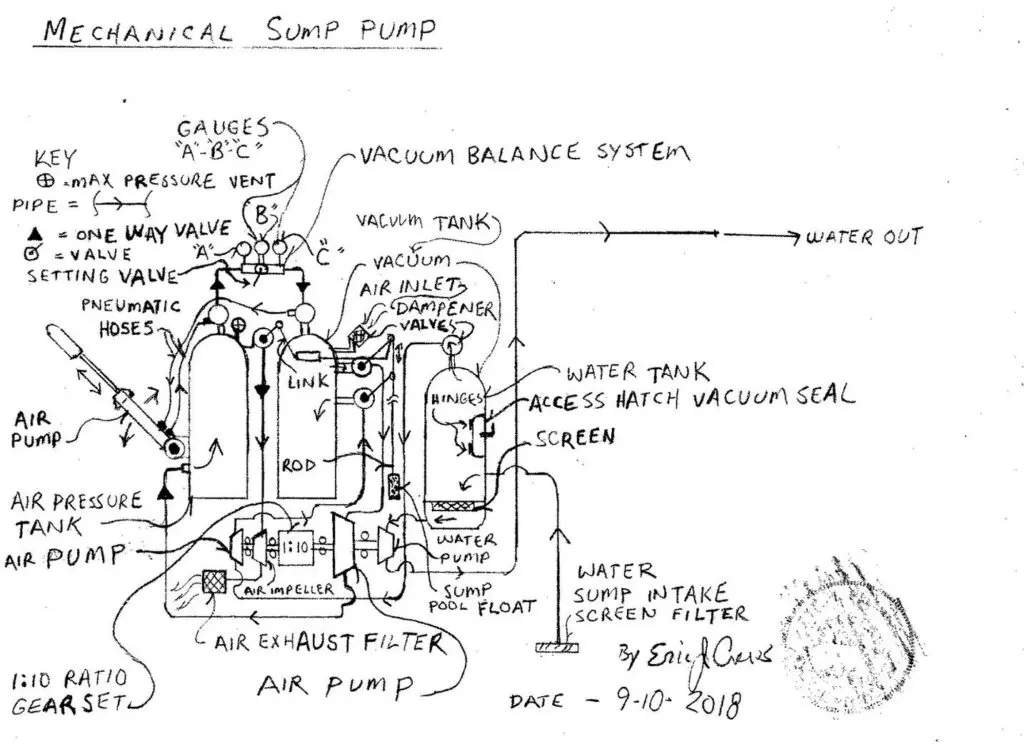 MECHANICAL SUMP PUMP
GAUGES
"A"-"B"-"C"
VACUUM BALANCE SYSTEM
KEY
⊕ = MAX PRESSURE VENT
PIPE =
▲ = ONE WAY VALVE
= VALVE
SETTING VALVE
"A"
B"
"C"
VACUUM TANK
VACUUM
AIR INLET
DAMPENER
VALVES
WATER OUT
PNEUMATIC
HOSES
LINK
AIR
PUMP
HINGES
WATER TANK
ACCESS HATCH VACUUM SEAL
SCREEN
ROD
AIR PRESSURE
TANK
AIR PUMP
1:10
WATER
PUMP
AIR IMPELLER
SUMP
POOL FLOAT
WATER
SUMP INTAKE
SCREEN FILTER
AIR EXHAUST FILTER
1:10 RATIO
GEARSET
AIR PUMP
By Eric J
DATE - 9-10-2018